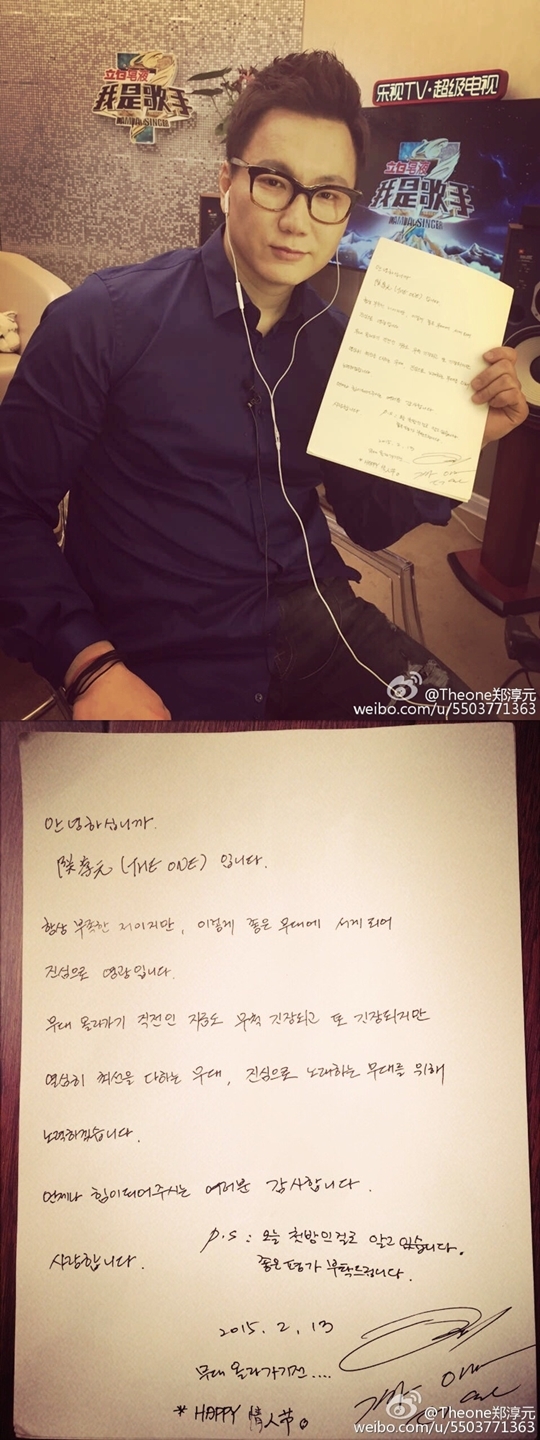 立白皂液
我是歌手
I AM A SINGER
乐视TV·超级电视
立白皂液
我是歌手
I AM A SINGER
@Theone郑淳元
weibo.com/u/5503771363
안녕하십니까.
淳元 (THE ONE) 입니다.
항상 부족한 저이지만, 이렇게 좋은 무대에 서게 되어
진심으로 영광입니다.
무대 올라가기 직전인 지금도 무척 긴장되고 또 긴장되지만
열심히 최선을 다하는 무대, 진심으로 노래하는 무대를 위해
노력하겠습니다.
언제나 힘이되어주시는 여러분 감사합니다.
사랑합니다.
P.S : 오늘 첫방인걸로 알고 있습니다.
좋은 평가 부탁드립니다.
2015. 2. 13
무대 올라가기전....
* HAPPY 情人节。
@Theone郑淳元
weibo.com/u/5503771363